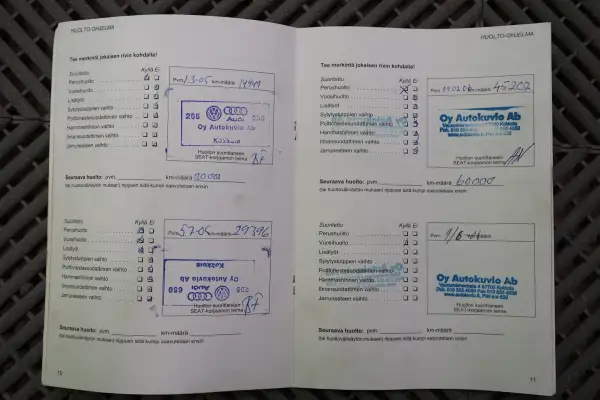 HUOLTO-OHJELMA
Tee merkintä jokaisen rivin kohdalle!
Suoritettu Kyllä Ei
Perushuolto
Vuosihuolto
Lisätyöt
Sytytystulppien vaihto
Polttonestesuodattimen vaihto
Hammashihnan vaihto
Ilmansuodattimen vaihto
Jarrunesteen vaihto
Pvm. km-määrä
205 Audi
Oy Autokuvio Ab
Kokkola
Huollon suorittaneen
SEAT-korjaamon leima
Seuraava huolto: pvm. km-määrä
(tai huoltovälinäytön mukaan) riippuen siitä kumpi saavutetaan ensin
Suoritettu Kyllä Ei
Perushuolto
Vuosihuolto
Lisätyöt
Sytytystulppien vaihto
Polttonestesuodattimen vaihto
Hammashihnan vaihto
Ilmansuodattimen vaihto
Jarrunesteen vaihto
Pvm. 5.7-05 km-määrä 29396
Oy Autokuvio Ab
Audi
Huollon suorittaneen
SEAT-korjaamon leima
Seuraava huolto: pvm. km-määrä
(tai huoltovälinäytön mukaan) riippuen siitä kumpi saavutetaan ensin
10
HUOLTO-OHJELMA
Tee merkintä jokaisen rivin kohdalle!
Suoritettu Kyllä Ei
Perushuolto
Vuosihuolto
Lisätyöt
Sytytystulppien vaihto
Polttonestesuodattimen vaihto
Hammashihnan vaihto
Ilmansuodattimen vaihto
Jarrunesteen vaihto
Pvm. km-määrä 45202
Oy Autokuvio Ab
Huollon suorittaneen
SEAT-korjaamon leima
Seuraava huolto: pvm. km-määrä 60000
(tai huoltovälinäytön mukaan) riippuen siitä kumpi saavutetaan ensin
Suoritettu Kyllä Ei
Perushuolto
Vuosihuolto
Lisätyöt
Sytytystulppien vaihto
Polttonestesuodattimen vaihto
Hammashihnan vaihto
Ilmansuodattimen vaihto
Jarrunesteen vaihto
Pvm.
Oy Autokuvio Ab
Huollon suorittaneen
SEAT-korjaamon leima
Seuraava huolto: pvm. km-määrä
(tai huoltovälinäytön mukaan) riippuen siitä kumpi saavutetaan ensin
11